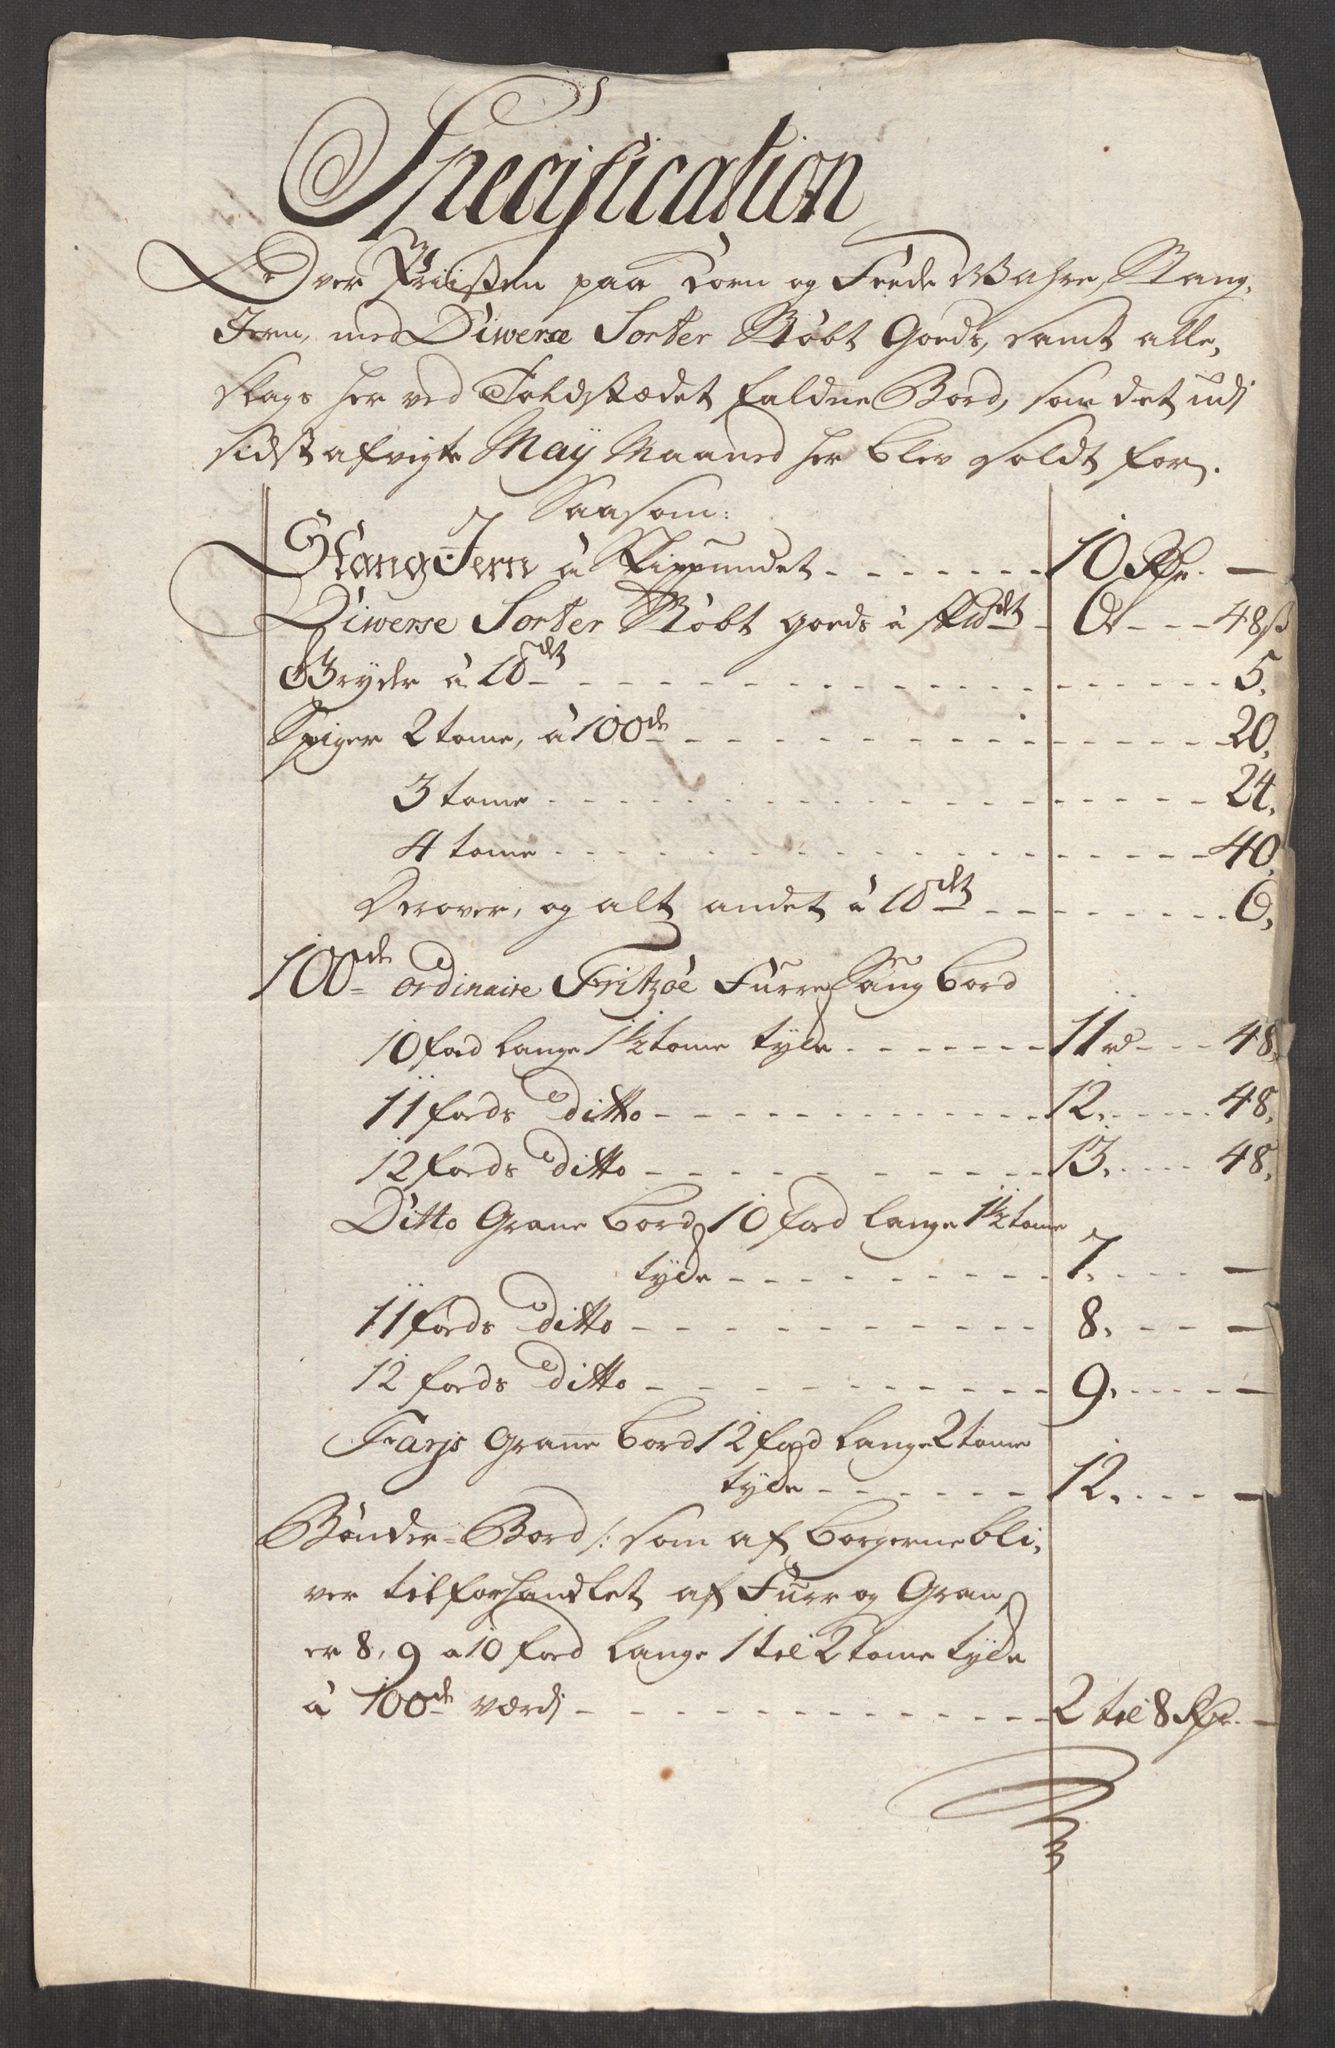 Specification
Over Priisen paa Korn og Feede Wahre, Stang-
Jern, med Diwerse Sorter Støbt Goeds, samt alle-
slags her ved Toldstædet faldne Bord, som det udj
sidst afvigte Maÿ Maaned her blev soldt for.
Saasom:
Stang Jern à Skippundet - - - - - - - 10 Rdr. —
Diwerse Sorter Støbt goeds à Sk℔dt - 6 - - - 48ß
Gryder à 18dt - - - - - 5.
Spiger 2 tome, à 100de - - - - - 20.
3 tome - - - - - 24.
4 tome - - - - - 40.
Derover, og alt andet à 18dt - - - - - 6.
100de ordinaire Fritzöe Furre Saug bord
10 fod lange 1½ tome tyke - - - - - 11 rd - - - 48.
11 fods ditto - - - - - 12. - - - 48.
12 fods ditto - - - - - 13. - - - 48.
Ditto Grane bord 10 fod lange 1½ tome
tyke - - - - - 7. - - - —
11 fods ditto - - - - - 8. - - - —
12 fods ditto - - - - - 9. - - - —
Farjs Grane bord 12 fod lange 2 tome
tyke - - - - - 12. - - - —
Bønder-Bord /: som af borgerne bli-
ver tilforhandlet af Furr og Gran
er 8, 9 a 10 fod lange 1 til 2 tome tyke
à 100de værdj - - - - - 2 til 8 Rdr. —